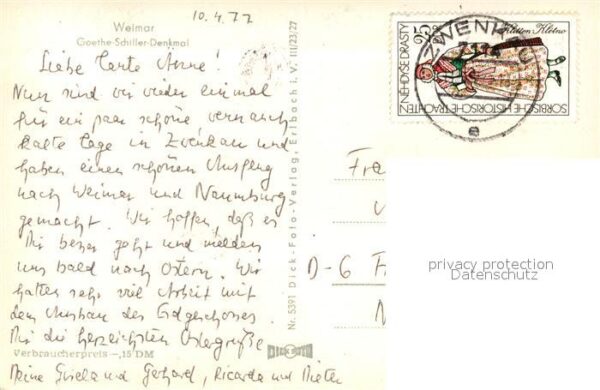 10.4.77
Weimar
Goethe-Schiller-Denkmal
Liebe Tante Anne!
Nun sind wir wieder einmal
für ein paar schöne
kalte Tage in Zwenkau und
haben einen schönen Ausflug
nach Weimar und Naumburg
gemacht. Wir hoffen, daß es
Dir besser geht und melden
uns bald nach Ostern. Wir
hatten sehr viel Arbeit mit
dem Ausbau des Erdgeschosses.
Dir die herzlichsten Ostergrüße
Verbraucherpreis -,15 DM
Deine Gisela und Gerhard, Ricarda und Dieter
Nr. 5391 Dick-Foto-Verlag, Erlbach i. V. III/23/27
DICK-FOTO
25
Z NĚHDYŠE DRASTY
SORBISCHE HISTORISCHE TRACHTEN
Klitten Klětno
ZWENKAU
e
Fra
D-6 F
privacy protection
Datenschutz